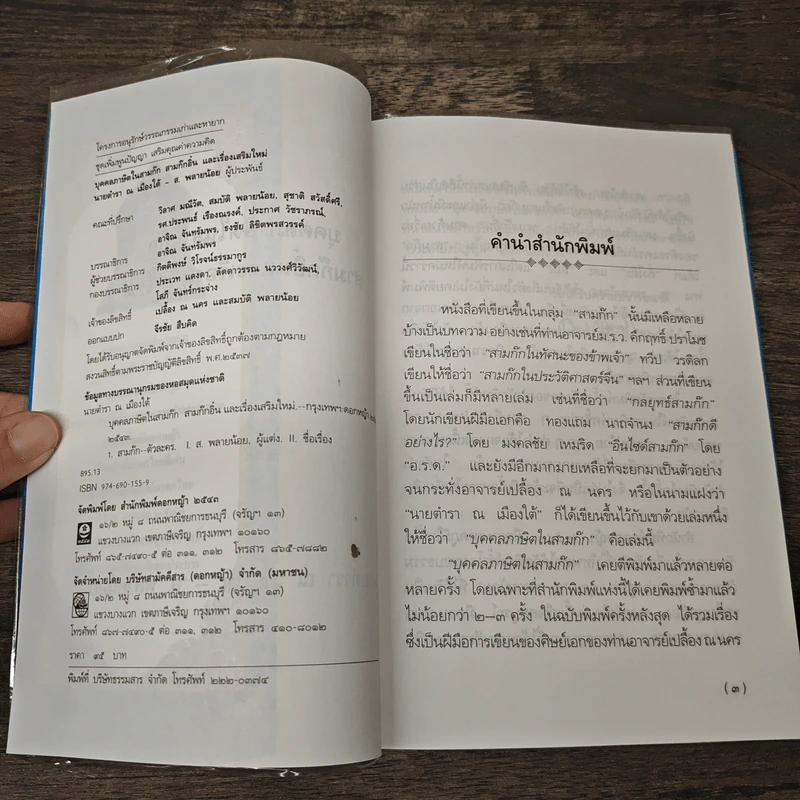 โครงการอนุรักษ์วรรณกรรมเก่าและหายาก
ชุดเพิ่มพูนปัญญา เสริมคุณค่าความคิด
บุคคลภาษิตในสามก๊ก สามก๊กอิ๋น และเรื่องเสริมใหม่
นายตำรา ณ เมืองใต้ - ส. พลายน้อย ผู้ประพันธ์
คณะที่ปรึกษา วิลาศ มณีวัต, สมบัติ พลายน้อย, สุชาติ สวัสดิ์ศรี,
รศ.ประพนธ์ เรืองณรงค์, ประกาศ วัชราภรณ์,
อาจิณ จันทรัมพร, ธงชัย ลิขิตพรสวรรค์
บรรณาธิการ อาจิณ จันทรัมพร
ผู้ช่วยบรรณาธิการ กิตติพงษ์ วิโรจน์ธรรมากูร
กองบรรณาธิการ ประเวท แดงดา, ลัดดาวรรณ นววงศ์วิวัฒน์,
โสภี จันทร์กระจ่าง
เจ้าของลิขสิทธิ์ เปลื้อง ณ นคร และสมบัติ พลายน้อย
ออกแบบปก จีรชัย สืบคิด
โดยได้รับอนุญาตจัดพิมพ์จากเจ้าของลิขสิทธิ์ถูกต้องตามกฎหมาย
สงวนสิทธิ์ตามพระราชบัญญัติลิขสิทธิ์ พ.ศ.๒๕๓๗
ข้อมูลทางบรรณานุกรมของหอสมุดแห่งชาติ
นายตำรา ณ เมืองใต้
บุคคลภาษิตในสามก๊ก สามก๊กอิ๋น และเรื่องเสริมใหม่.--กรุงเทพฯ:ดอกหญ้า
๒๕๔๓.
1. สามก๊ก--ตัวละคร. I. ส. พลายน้อย, ผู้แต่ง. II. ชื่อเรื่อง
895.13
ISBN 974-690-155-9
จัดพิมพ์โดย สำนักพิมพ์ดอกหญ้า ๒๕๔๓
๑๖/๒ หมู่ ๘ ถนนพาณิชยการธนบุรี (จรัญฯ ๑๓)
แขวงบางแวก เขตภาษีเจริญ กรุงเทพฯ ๑๐๑๖๐
โทรศัพท์ ๘๖๕-๗๔๙๐-๕ ต่อ ๓๑๑, ๓๑๒ โทรสาร ๘๖๕-๗๘๘๒
จัดจำหน่ายโดย บริษัทสามัคคีสาร (ดอกหญ้า) จำกัด (มหาชน)
๑๖/๒ หมู่ ๘ ถนนพาณิชยการธนบุรี (จรัญฯ ๑๓)
แขวงบางแวก เขตภาษีเจริญ กรุงเทพฯ ๑๐๑๖๐
โทรศัพท์ ๘๖๗-๗๔๙๐-๕ ต่อ ๓๑๑, ๓๑๒ โทรสาร ๔๑๐-๘๐๑๒
ราคา ๙๕ บาท
พิมพ์ที่ บริษัทธรรมสาร จำกัด โทรศัพท์ ๒๒๒-๐๓๗๔
คำนำสำนักพิมพ์
หนังสือที่เขียนขึ้นในกลุ่ม “สามก๊ก” นั้นมีเหลือหลาย
บ้างเป็นบทความ อย่างเช่นที่ท่านอาจารย์ม.ร.ว. คึกฤทธิ์ ปราโมช
เขียนในชื่อว่า “สามก๊กในทัศนะของข้าพเจ้า” ทวีป วรดิลก
เขียนให้ชื่อว่า “สามก๊กในประวัติศาสตร์จีน” ฯลฯ ส่วนที่เขียน
ขึ้นเป็นเล่มก็มีหลายเล่ม เช่นที่ชื่อว่า “กลยุทธ์สามก๊ก”
โดยนักเขียนฝีมือเอกคือ ทองแถม นาถจำนง “สามก๊กดี
อย่างไร?” โดย มงคลชัย เหมริด “อินไซด์สามก๊ก” โดย
“อ.ร.ด.” และยังมีอีกมากมายเหลือที่จะยกมาเป็นตัวอย่าง
จนกระทั่งอาจารย์เปลื้อง ณ นคร หรือในนามแฝงว่า
“นายตำรา ณ เมืองใต้” ก็ได้เขียนขึ้นไว้กับเขาด้วยเล่มหนึ่ง
ให้ชื่อว่า “บุคคลภาษิตในสามก๊ก” คือเล่มนี้
“บุคคลภาษิตในสามก๊ก” เคยตีพิมพ์มาแล้วหลายต่อ
หลายครั้ง โดยเฉพาะที่สำนักพิมพ์แห่งนี้ได้เคยพิมพ์ซ้ำมาแล้ว
ไม่น้อยกว่า ๒-๓ ครั้ง ในฉบับพิมพ์ครั้งหลังสุด ได้รวมเรื่อง
ซึ่งเป็นฝีมือการเขียนของศิษย์เอกของท่านอาจารย์เปลื้อง ณ นคร
(๓)